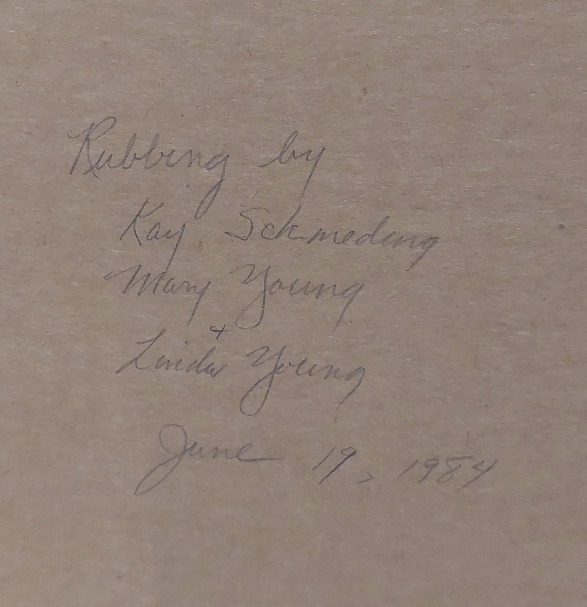 Rubbing by
Kay Schmeding
Mary Young
+
Linda Young
June 19, 1984